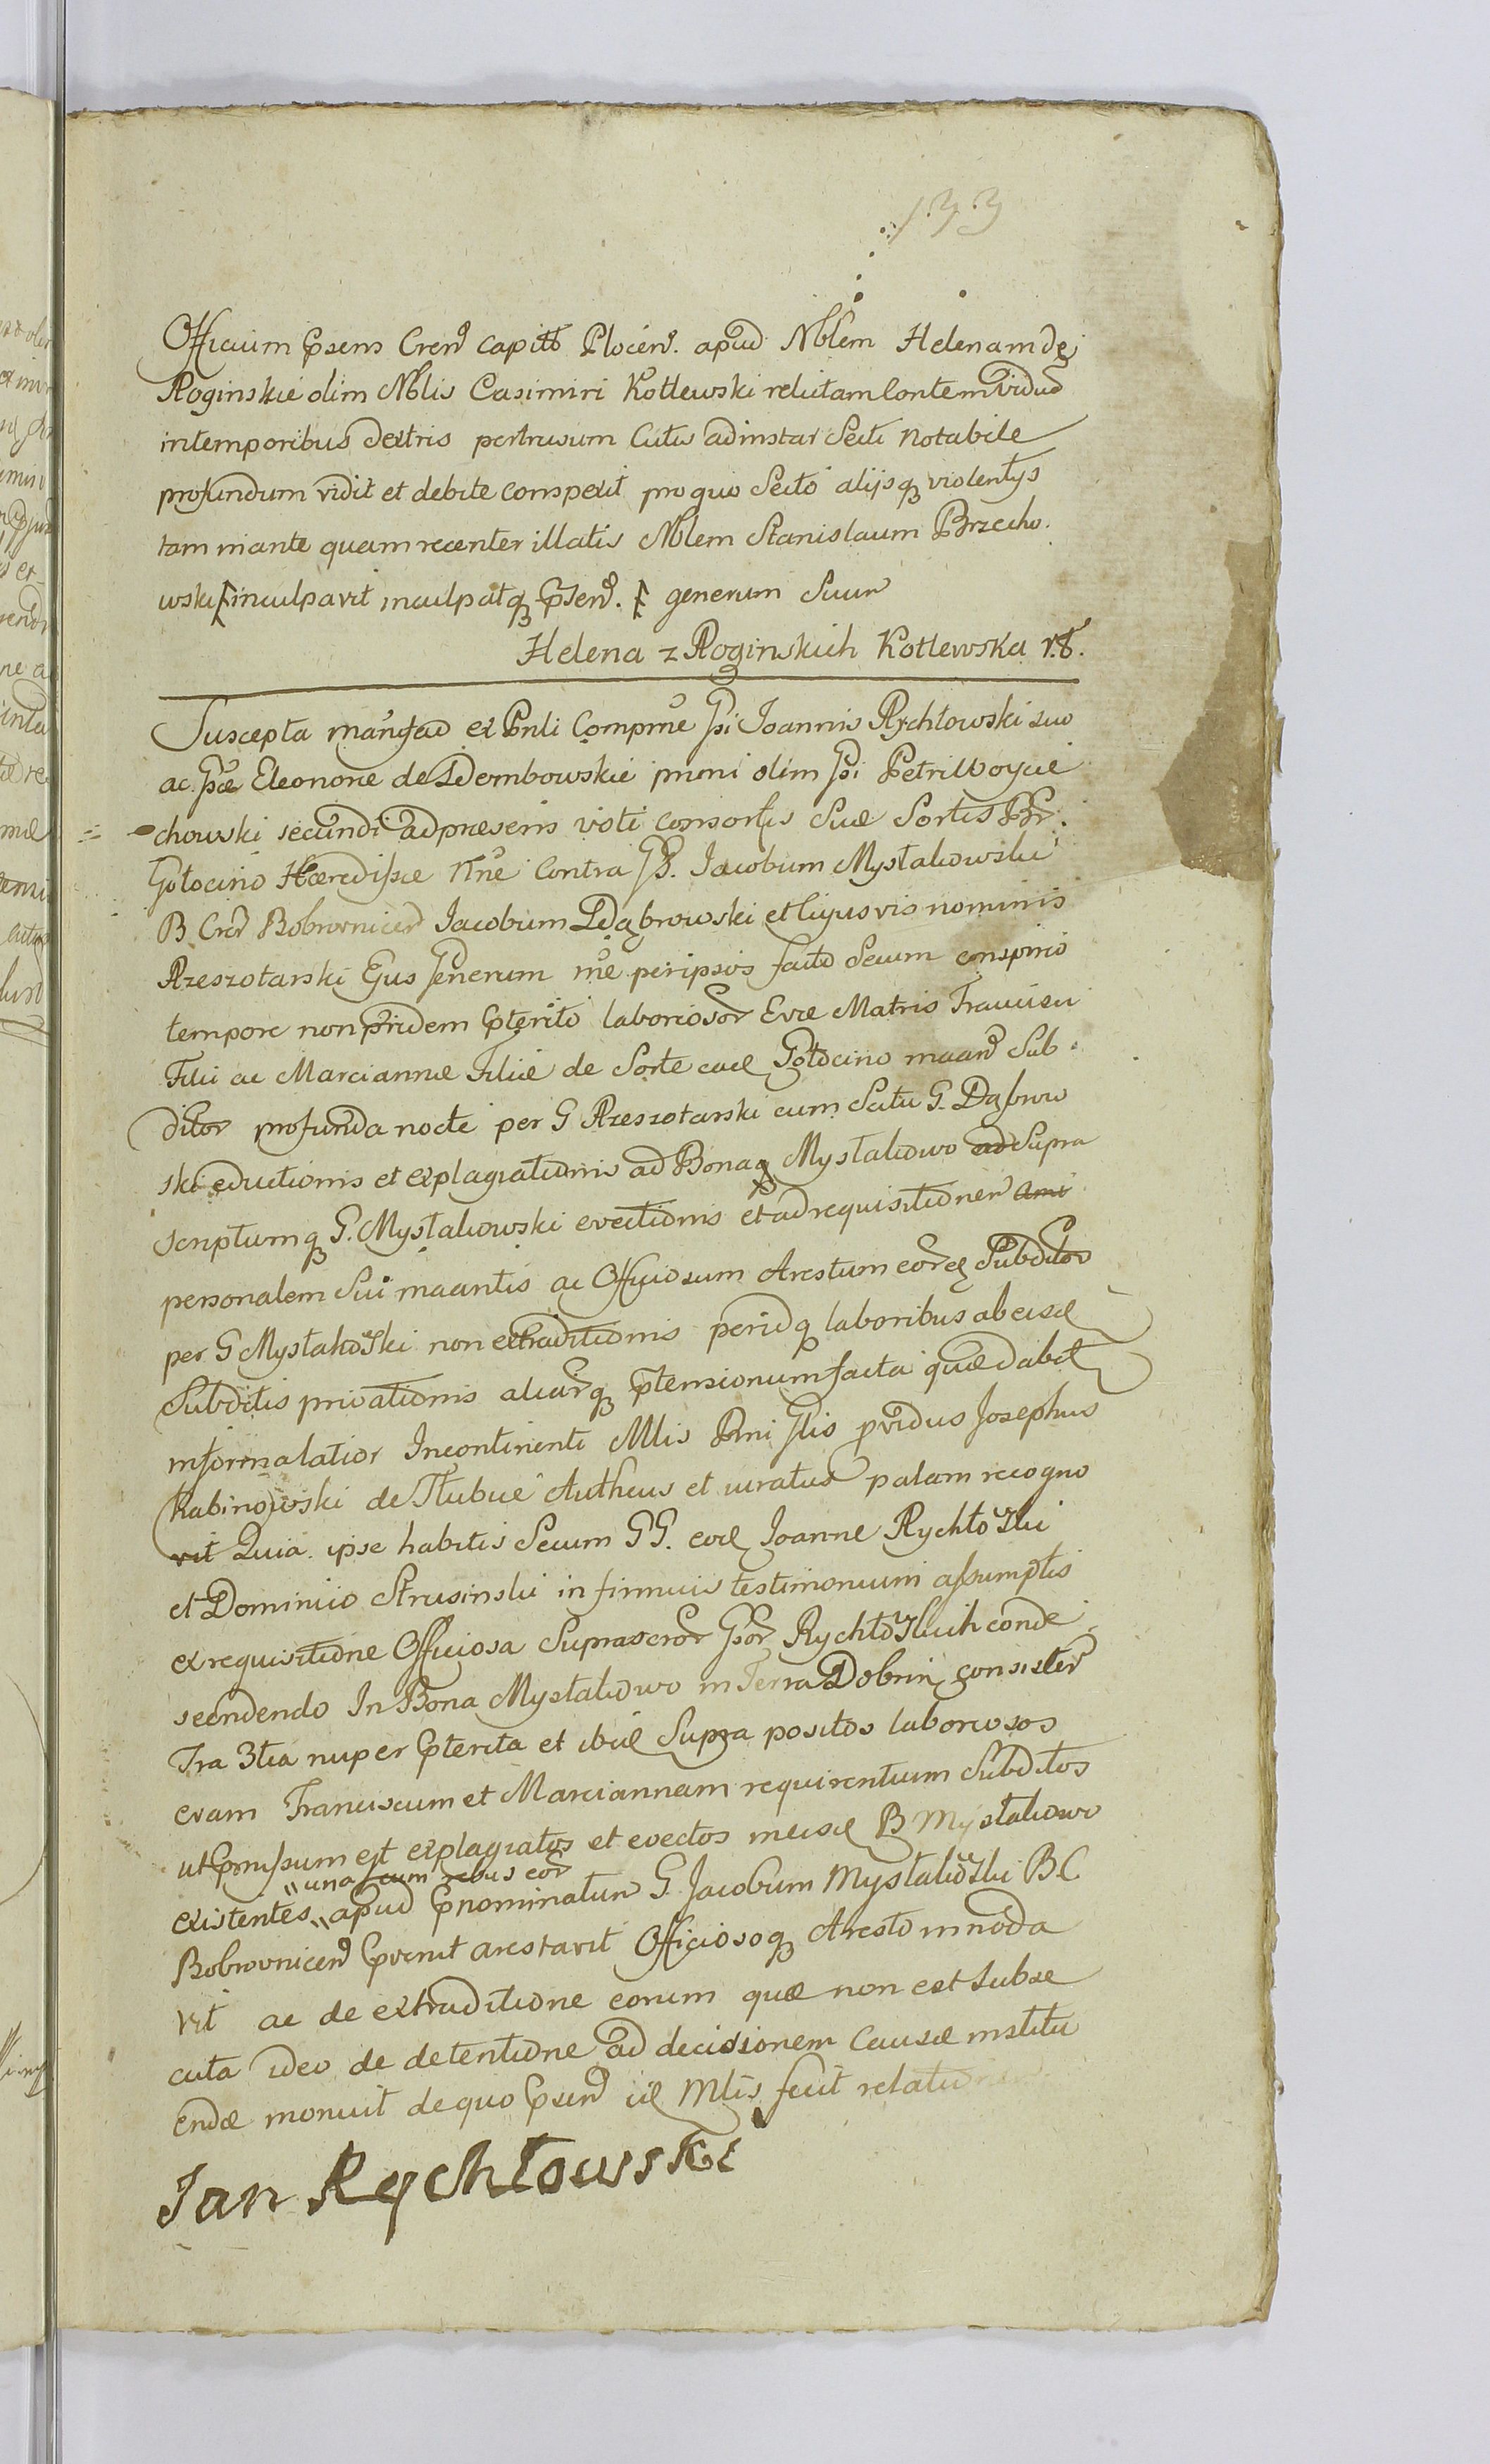 133
Officium Psens Cren capitt Plocen. apud Nblem Helenam de
Roginskie olim Nblis Casimiri Kotlewski relictam Contem vidud
in temporibus dextris pertusum Cutis ad instar Secti notabile
profundum vidit et debite conspexit pro quo Secto alijsq violentys
tam in ante quam recenter illatis Nblem Stanislaum Brzecho.
wski inculpavit inculpatq Psen. generum Suum
Helena z Roginskich Kotlewska
Suscepta ex Pnli Compne Gsi Joannis Rychłowski suo
ac Gsæ Eleonore de Dembowskie primi olim Gsi Petri Woycie
chowski secundi ad præsens voti consortis Suæ Sortis
Gołocino Hæredissæ nne Contra Gs. Jacobum Mystakowski
B Cren Bobrownicen Jacobum Dąbrowski et Cujusvis nominis
Rzeszotarski Ejus Generum per ipsos facto Secum conspirio
tempore non pridem Pterito laboriosor Evæ Matris Francisci
Filii ac Mariannæ Filiæ de Sorte ead Gołocino maan Sub
ditor profunda nocte per G Rzeszotarski cum Scitu G. Dąbrow
ski eductionis et explagiationis ad Bonaq Mystakowo ad Supra
scriptumq G. Mystakowski evectionis et ad requisitionem ami
personalem Sui maantis ac Officiosum Arestum eorq Subditor
per G Mystakowski non extraditionis peridq laboribus ab eisd
Subditis privationis aliarq Ptensionum facta quæ dabit
informalatior Incontinenti Mlis Rni Glis providus Josephus
Rabinowski de Authcus et iuratus palam recogno
vit Quia ipse habitis Secum GG. eod Joanne Rychłowski
et Dominico Strusinski in firmius testimonium assumptis
ex requisitione Officiosa Suprascror Gsor Rychłowskich conde
scendendo In Bona Mystakowo in Terra Dobrin consisten
Fra 3tia nuper Pterita et ibid Supra positos laboriosos
evam Franciscum et Mariannam requirentium Subditos
ut Pmissum est explagiatos et evectos in eisd B Mystakowo
existentes " una cum rebus eor " apud Pnominatum G. Jacobum Mystakowski B C
Bobrownicen Pvenit arestavit Officiosoq Aresto innoda
vit ac de extraditione eorum quæ non est Subse
cuta ideo de detentione ad decisionem Causæ institu
endæ monuit de quo Psen id Mlis fecit relationem
Jan Rychłowski